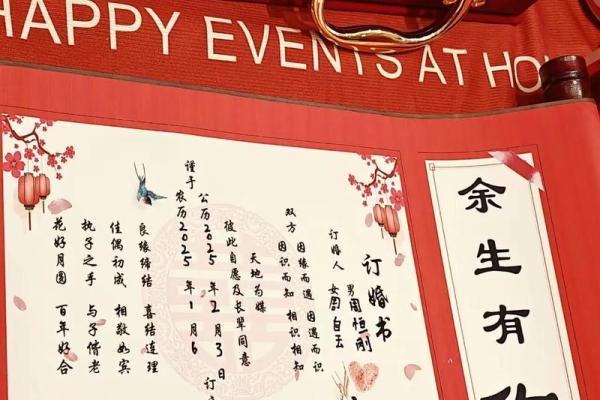 HAPPY EVENTS AT HO
余生有
订婚书
订婚人
男周恒刚
女周自玉
双方
因缘而遇 因遇而识
因识而知 相识相知
天地为媒
彼此自愿及长辈同意
谨于
公历2025年2月3日 订
农历2025年1月6
良缘缔结 喜结连理
佳偶初成 相敬如宾
执子之手 与子偕老
花好月圆 百年好合